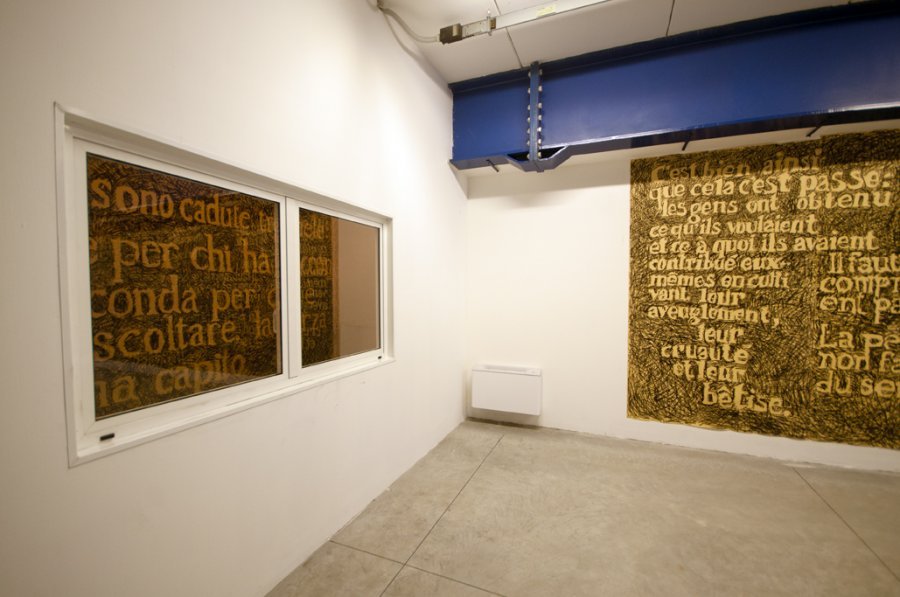 sono cadute
e per chi ha
conda per
scoltare, la
ha capito
C'est bien ainsi
que cela c'est passé:
les gens ont obtenu
ce qu'ils voulaient
et ce à quoi ils avaient
contribué eux-
mêmes en culti
vant leur
aveuglement,
leur
cruauté
et leur
bêtise.
Il faut
compr
ent pa
La pe
non fa
du se